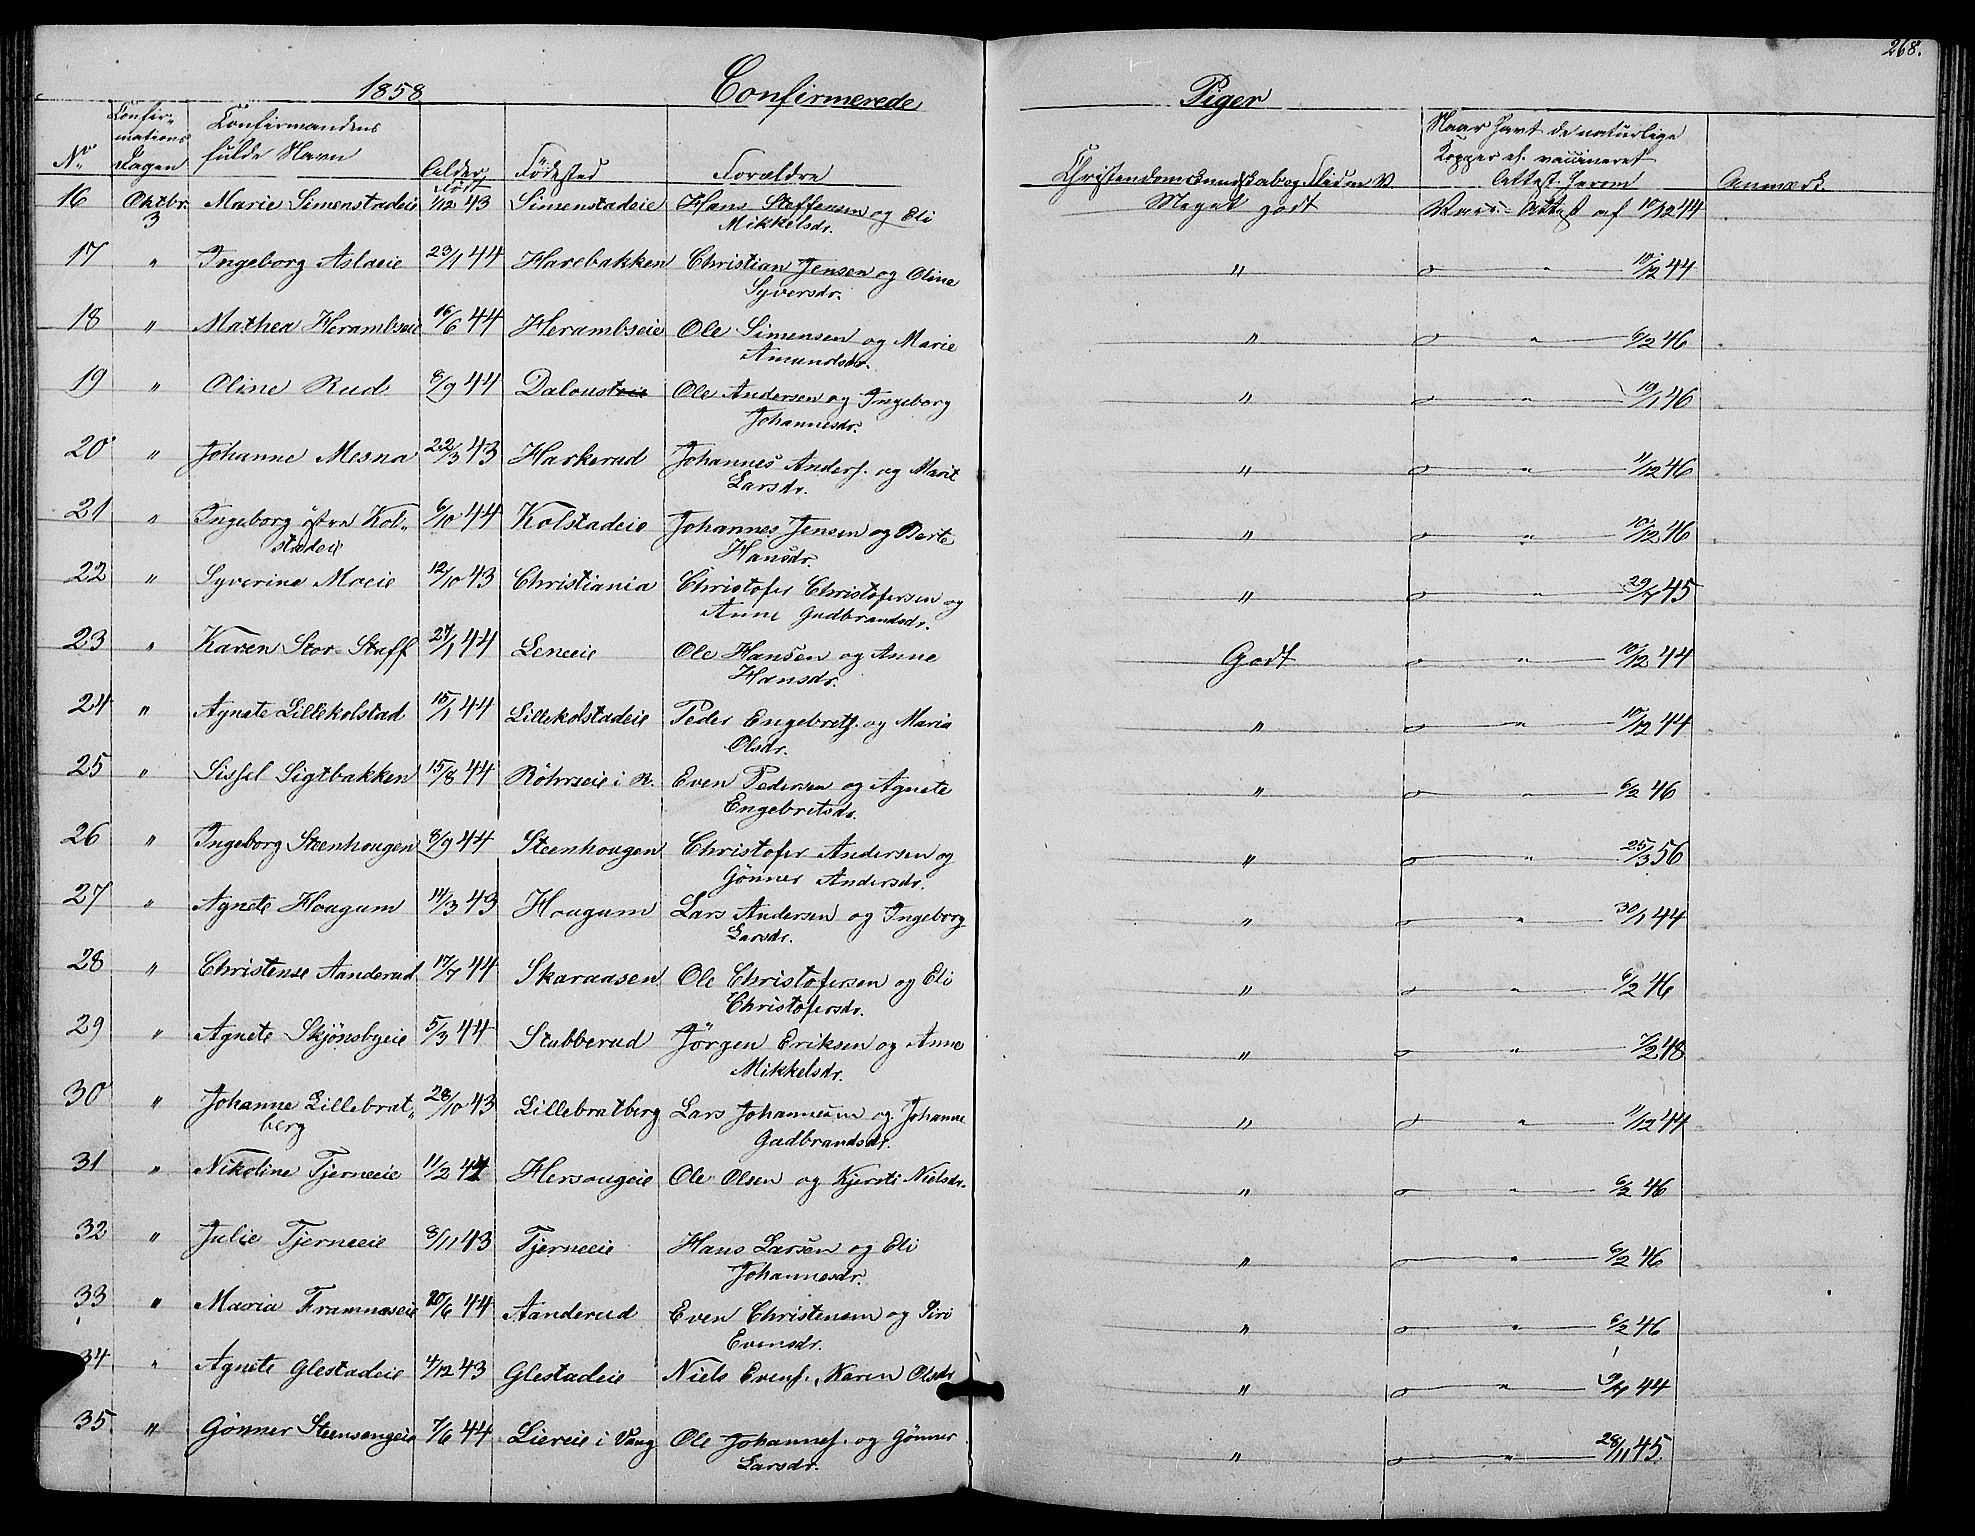 268.
1858 Confirmerede Piger
No. Confir- mations Dagen Confirmandens fulde Navn Alder, Født Fødested Forældre Christendomskundskab og Flid m. V. Naar havt de naturlige Kopper el. vaccineret Attest herom Anmærk.
16 Oktbr. 3 Marie Simenstadeie 1/12 43 Simenstadeie Hans Steffensen og Eli Meget godt Vacc. Attest af 10/12 44
Mikkelsdr.
17 " Ingeborg Aslaeie 23/1 44 Harebakken Christian Jensen og Oline " " 10/12 44
Syversdr.
18 " Mathea Herambseie 16/6 44 Herambseie Ole Simensen og Marie " " 6/2 46
Amundsdr.
19 " Oline Rud 8/9 44 Daloust Ole Andersen og Ingeborg " " 19/1 46
Johannesdr.
20 " Johanne Mesna 22/3 43 Harkerud Johannes Anders. og Marit " " 11/12 46
Larsdr.
21 " Ingeborg östre Kol- 6/10 44 Kolstadeie Johannes Jensen og Berte " " 10/12 46
stadeie Hansdr.
22 " Syverine Moeie 12/10 43 Christiania Christofer Christofersen og " " 29/7 45
Anne Gudbrandsdr.
23 " Karen Stor-Staff 27/1 44 Leneeie Ole Hansen og Anne Godt " 10/12 44
Hansdr.
24 " Agnete Lillekolstad 15/1 44 Lillekolstadeie Peder Engebrets. og Maria " " 10/12 44
Olsdr.
25 " Sissel Sigtbakken 15/8 44 Röhrseie i R. Even Pedersen og Agnete " " 6/2 46
Engebretsdr.
26 " Ingeborg Steenhougen 8/9 44 Steenhougen Christofer Andersen og " " 25/3 56
Gönner Andersdr.
27 " Agnete Hougum 14/3 43 Hougum Lars Andersen og Ingeborg " " 30/1 44
Larsdr.
28 " Christense Aanderud 17/7 44 Skaraasen Ole Christofersen og Eli " " 6/2 46
Christofersdr.
29 " Agnete Skjönsbyeie 5/3 44 Stubberud Jörgen Eriksen og Anne " " 7/2 48
Mikkelsdr.
30 " Johanne Lillebrat- 28/10 43 Lillebratberg Lars Johannesen og Johanne " " 11/12 44
berg Gudbrandsdr.
31 " Nikoline Tjerneeie 11/2 44 Hersougeie Ole Olsen og Kjersti Nielsdr. " " 6/2 46
32 " Julie Tjerneeie 8/11 43 Tjerneeie Hans Larsen og Eli " " 6/2 46
Johannesdr.
33 " Maria Framnæseie 20/6 44 Aanderud Even Christensen og Siri " " 6/2 46
Evensdr.
34 " Agnete Glestadeie 4/12 43 Glestadeie Niels Evens., Karen Olsdr " " 9/7 44
35 " Gönner Steensengeie 7/6 44 Liereie i Vang Ole Johannes. og Gönner " " 28/11 45.
Larsdr.